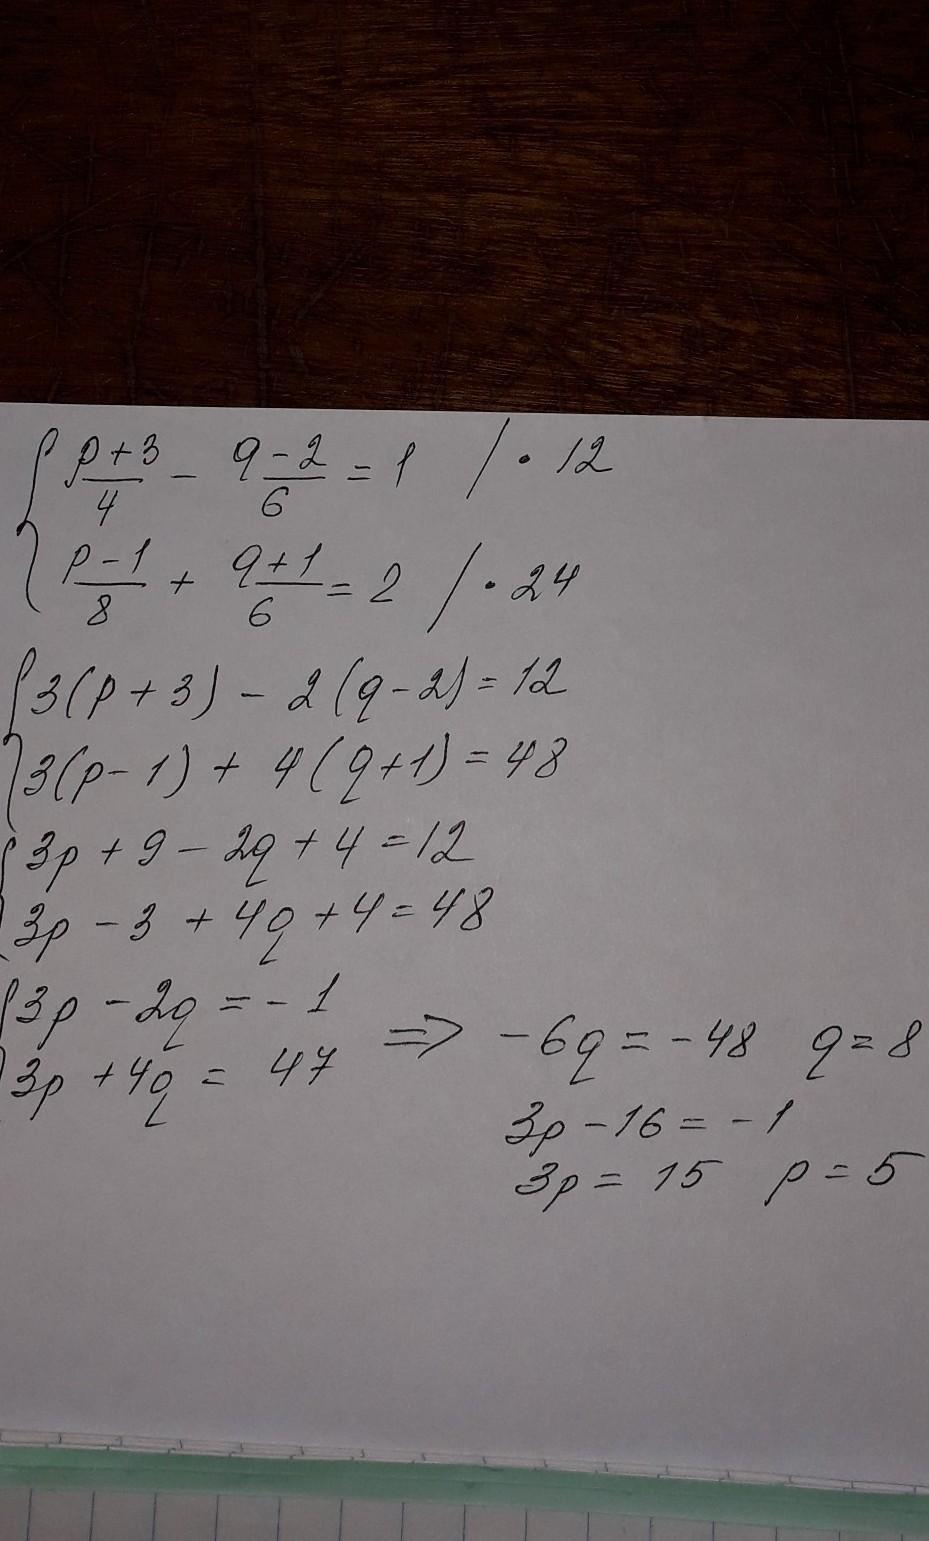 { (p+3)/4 - (q-2)/6 = 1 / · 12
(p-1)/8 + (q+1)/6 = 2 / · 24
{ 3(p+3) - 2(q-2) = 12
3(p-1) + 4(q+1) = 48
{ 3p + 9 - 2q + 4 = 12
3p - 3 + 4q + 4 = 48
{ 3p - 2q = -1
3p + 4q = 47
=> -6q = -48 q = 8
3p - 16 = -1
3p = 15 p = 5